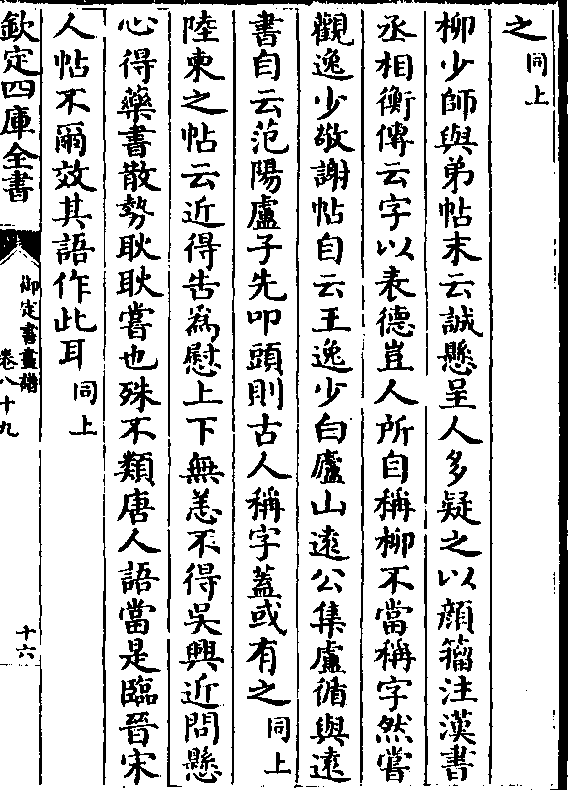 之同上
柳少師與弟帖末云誠懸呈人多疑之以顔籀注漢書
丞相衡傳云字以表德豈人所自稱柳不當稱字然嘗
觀逸少敬謝帖自云王逸少白廬山遠公集盧循與遠
書自云范陽盧子先叩頭則古人稱字蓋或有之同上
陸柬之帖云近得告為慰上下無恙不得吳興近問懸
心得藥書散勢耿耿嘗也殊不類唐人語當是臨晉宋
人帖不爾效其語作此耳同上
欽定四庫全書
御定書畫譜
卷八十九
十六